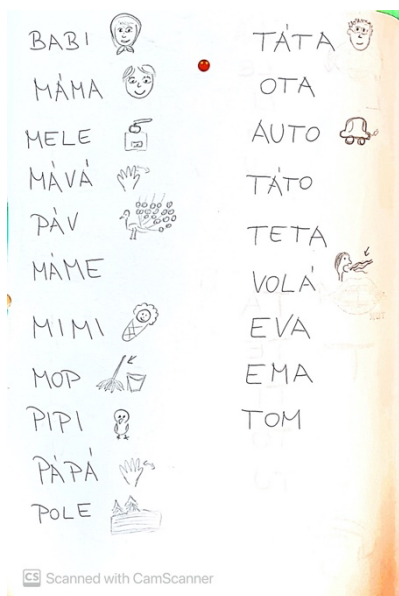 BABI
MÁMA
MELE
MÁVÁ
PÁV
MÁME
MIMI
MOP
PIPI
PÁPÁ
POLE
TÁTA
OTA
AUTO
TÁTO
TETA
VOLÁ
EVA
EMA
TOM
CS Scanned with CamScanner